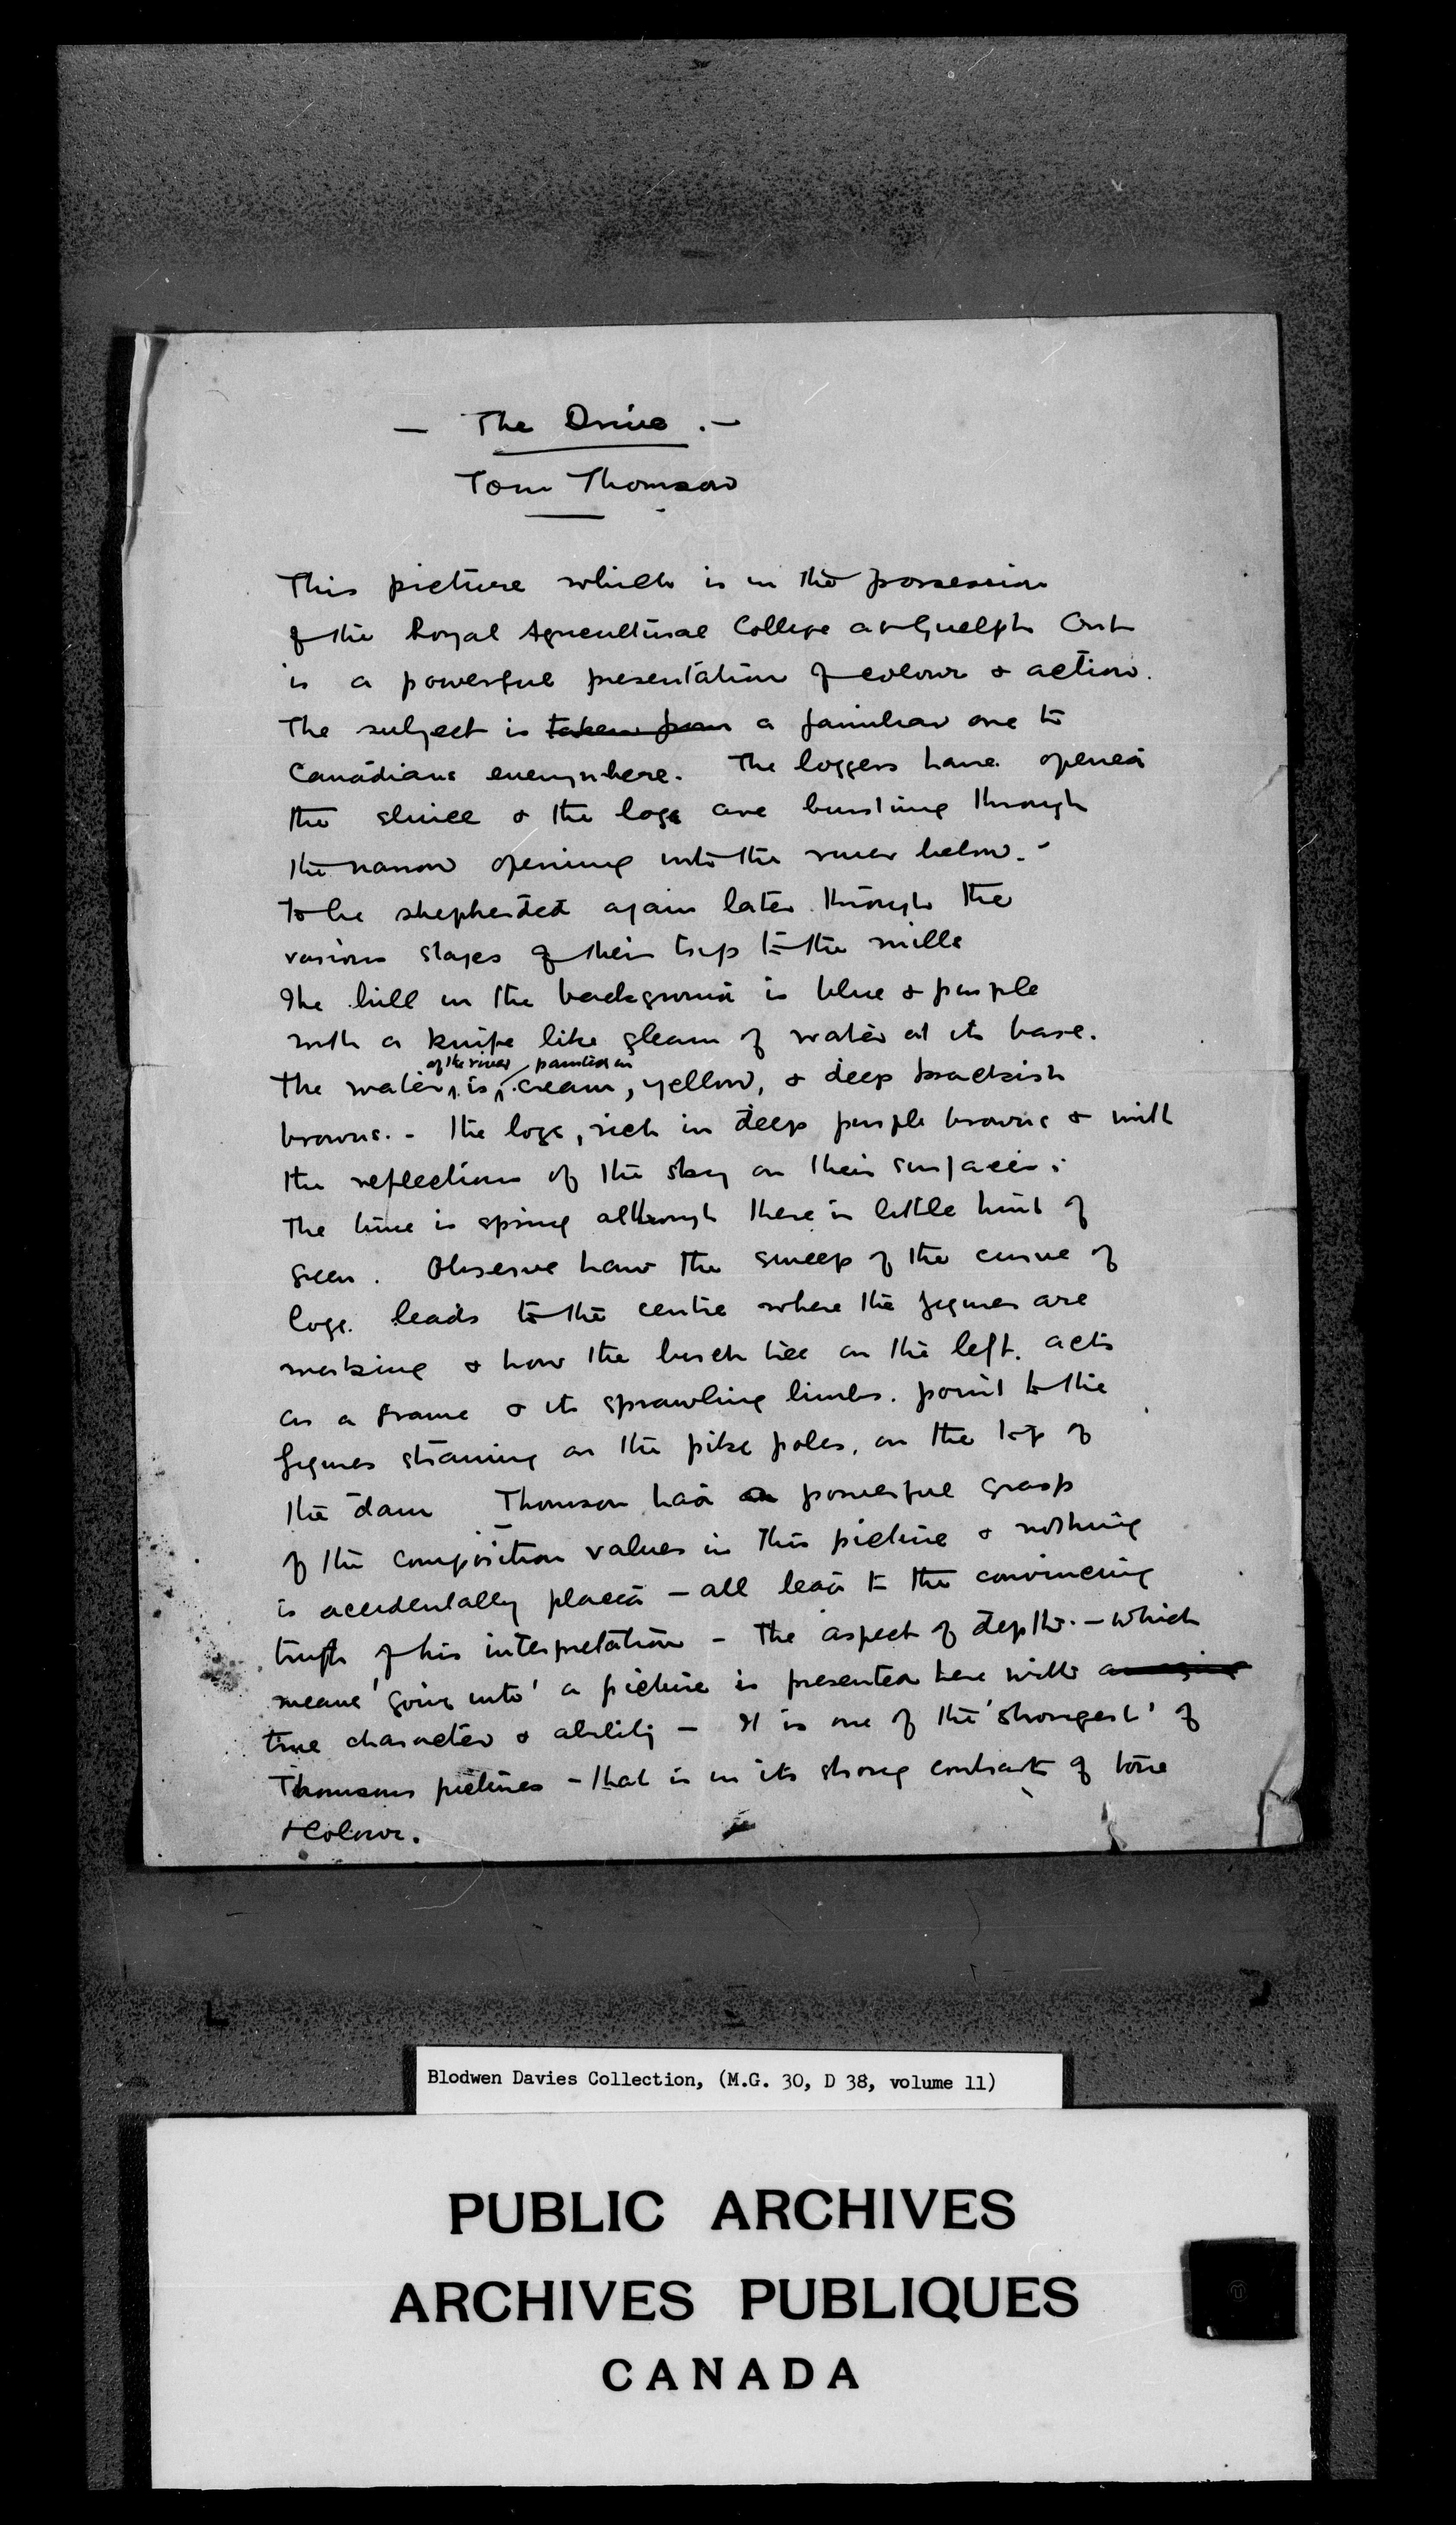 — The Drive . —
Tom Thomson
This picture which is in the possession
of the Royal Agricultural College at Guelph Ont
is a powerful presentation of colour & action.
The subject is taken from a familiar one to
Canadians everywhere. The loggers have opened
the sluice & the logs are bursting through
the narrow opening into the river below. -
to be shepherded again later through the
various stages of their trip to the mills
The hill in the background is blue & purple
with a knife like gleam of water at its base.
of the river painted in
The water is cream, yellow, & deep brackish
browns. - The logs, rich in deep purple browns & with
the reflections of the sky on their surfaces.
The time is spring although there is little hint of
green. Observe how the sweep of the curve of
logs. leads to the centre where the figures are
working & how the birch tree on the left. acts
as a frame & its sprawling limbs. point to the
figures straining on the pike poles, on the top of
the dam Thomson had a powerful grasp
of the composition values in this picture & nothing
is accidentally placed — all lead to the convincing
truth of his interpretation - The aspect of depth. — which
means 'going into' a picture is presented here with amazing
true character & ability — It is one of the 'strongest' of
Thomsons pictures - that is in its strong contrasts of tone
& colour.
Blodwen Davies Collection, (M.G. 30, D 38, volume 11)
PUBLIC ARCHIVES
ARCHIVES PUBLIQUES
CANADA